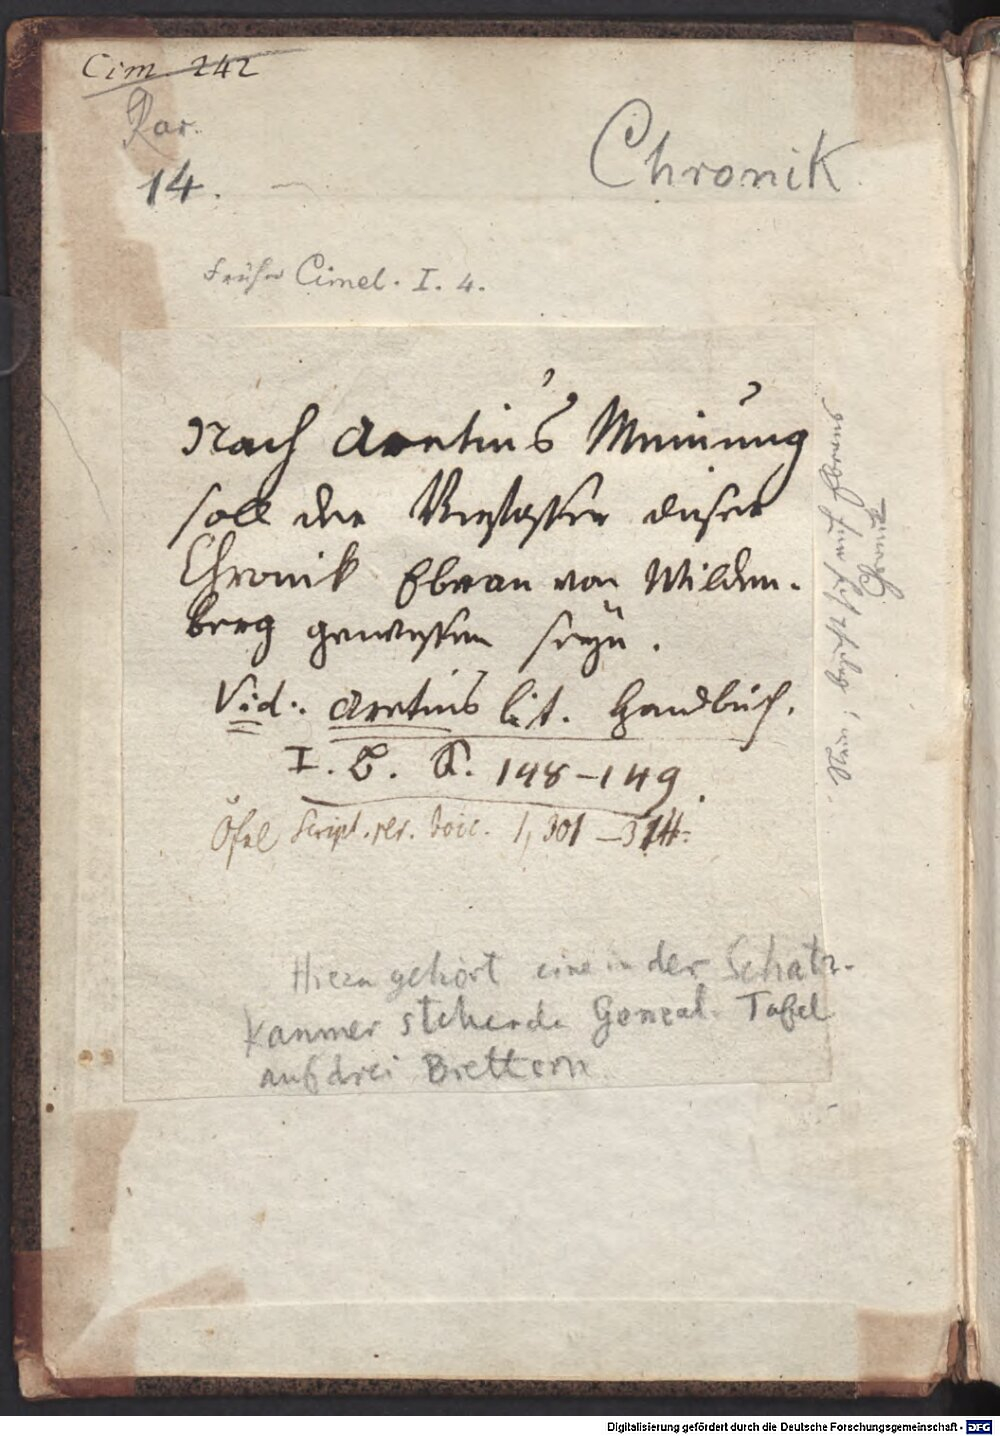 Cim. 242
Rar.
14.
Chronik
früher Cimel. I. 4.
Nach Aretin's Meinung
soll der Verfasser dieser
Chronik Ebran von Wilden-
berg gewesen seyn.
Vid. Aretins lit. Handbuch.
I. B. S. 148-149.
Öfel Script. rer. boic. 1, 301-314.
Nein, bezieht sich auf Ebrans
Chronik
Hiezu gehört eine in der Schatz-
kammer stehende Geneal. Tafel
auf drei Brettern
Digitalisierung gefördert durch die Deutsche Forschungsgemeinschaft - DFG